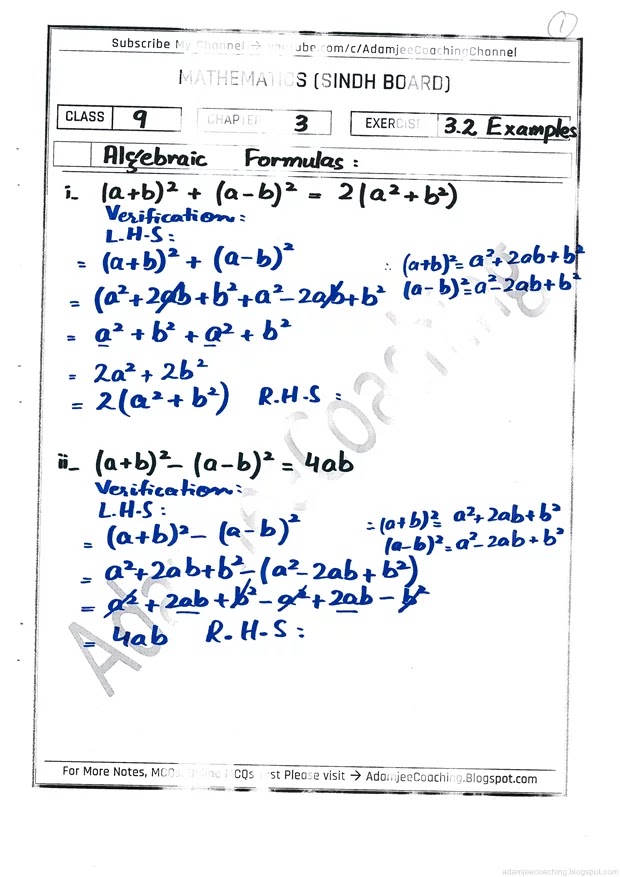 1
Subscribe My Channel → youtube.com/c/AdamjeeCoachingChannel
MATHEMATICS (SINDH BOARD)
CLASS 9 CHAPTER 3 EXERCISE 3.2 Examples
Algebraic Formulas :
i- (a+b)² + (a-b)² = 2(a²+b²)
Verification :
L.H-S :
= (a+b)² + (a-b)² ∴ (a+b)² = a²+2ab+b²
= (a²+2ab+b²+a²-2ab+b² (a-b)² = a²-2ab+b²
= a² + b² + a² + b²
= 2a² + 2b²
= 2(a² + b²) R.H-S :
ii- (a+b)² - (a-b)² = 4ab
Verification :
L.H-S :
= (a+b)² - (a-b)² = (a+b)² = a²+2ab+b²
(a-b)² = a²-2ab+b²
= a²+2ab+b²-(a²-2ab+b²)
= a² + 2ab + b² - a² + 2ab - b²
= 4ab R.H-S :
Adamjee Coaching
For More Notes, MCQs, Online MCQs Test Please visit → AdamjeeCoaching.Blogspot.com
adamjeecoaching.blogspot.com